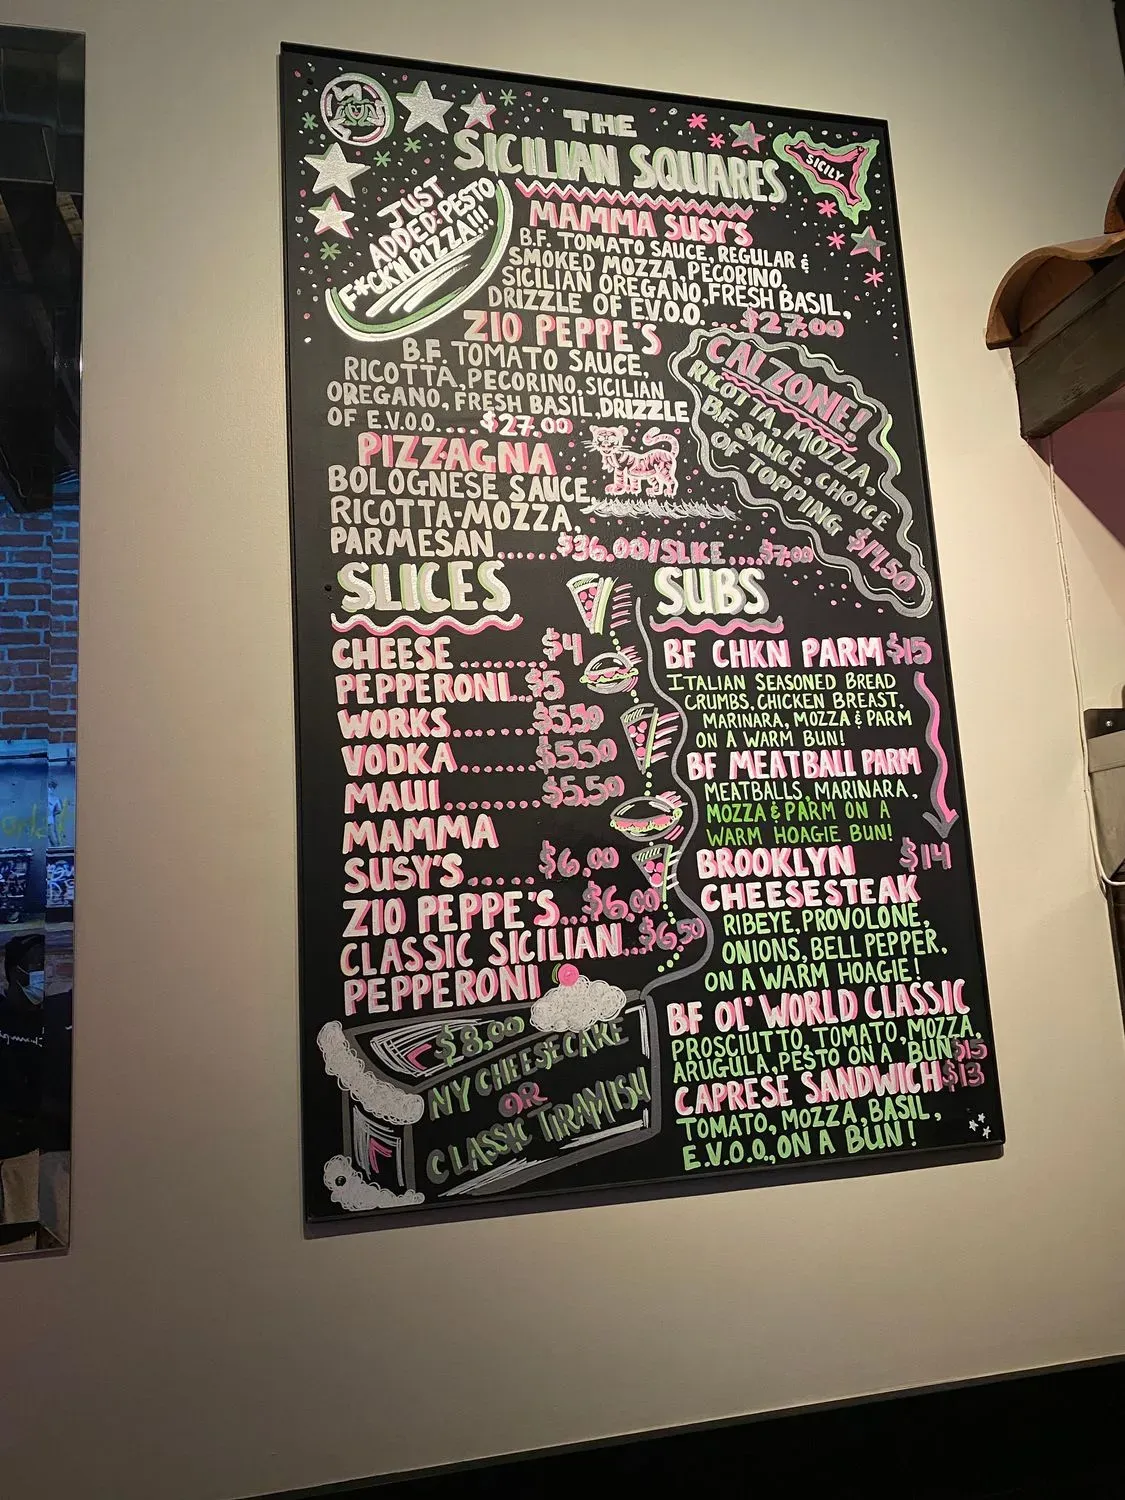 THE
SICILIAN SQUARES
SICILY
JUST
ADDED: PESTO
F*CK'N PIZZA!!!
MAMMA SUSY'S
B.F. TOMATO SAUCE, REGULAR &
SMOKED MOZZA, PECORINO,
SICILIAN OREGANO, FRESH BASIL,
DRIZZLE OF E.V.O.O. ...$27.00
ZIO PEPPE'S
B.F. TOMATO SAUCE,
RICOTTA, PECORINO, SICILIAN
OREGANO, FRESH BASIL, DRIZZLE
OF E.V.O.O.... $27.00
CALZONE!
RICOTTA, MOZZA,
B.F. SAUCE, CHOICE
OF TOPPING $14.50
PIZZAGNA
BOLOGNESE SAUCE,
RICOTTA-MOZZA,
PARMESAN......$36.00/SLICE ...$7.00
SLICES
CHEESE .......$4
PEPPERONI...$5
WORKS.......$5.50
VODKA.......$5.50
MAUI........$5.50
MAMMA
SUSY'S.....$6.00
ZIO PEPPE'S...$6.00
CLASSIC SICILIAN...$6.50
PEPPERONI
$8.00
NY CHEESECAKE
OR
CLASSIC TIRAMISU
SUBS
BF CHKN PARM $15
ITALIAN SEASONED BREAD
CRUMBS, CHICKEN BREAST,
MARINARA, MOZZA & PARM
ON A WARM BUN!
BF MEATBALL PARM
MEATBALLS, MARINARA,
MOZZA & PARM ON A
WARM HOAGIE BUN!
BROOKLYN $14
CHEESESTEAK
RIBEYE, PROVOLONE,
ONIONS, BELL PEPPER,
ON A WARM HOAGIE!
BF OL' WORLD CLASSIC
PROSCIUTTO, TOMATO, MOZZA,
ARUGULA, PESTO ON A BUN $15
CAPRESE SANDWICH $13
TOMATO, MOZZA, BASIL,
E.V.O.O., ON A BUN!